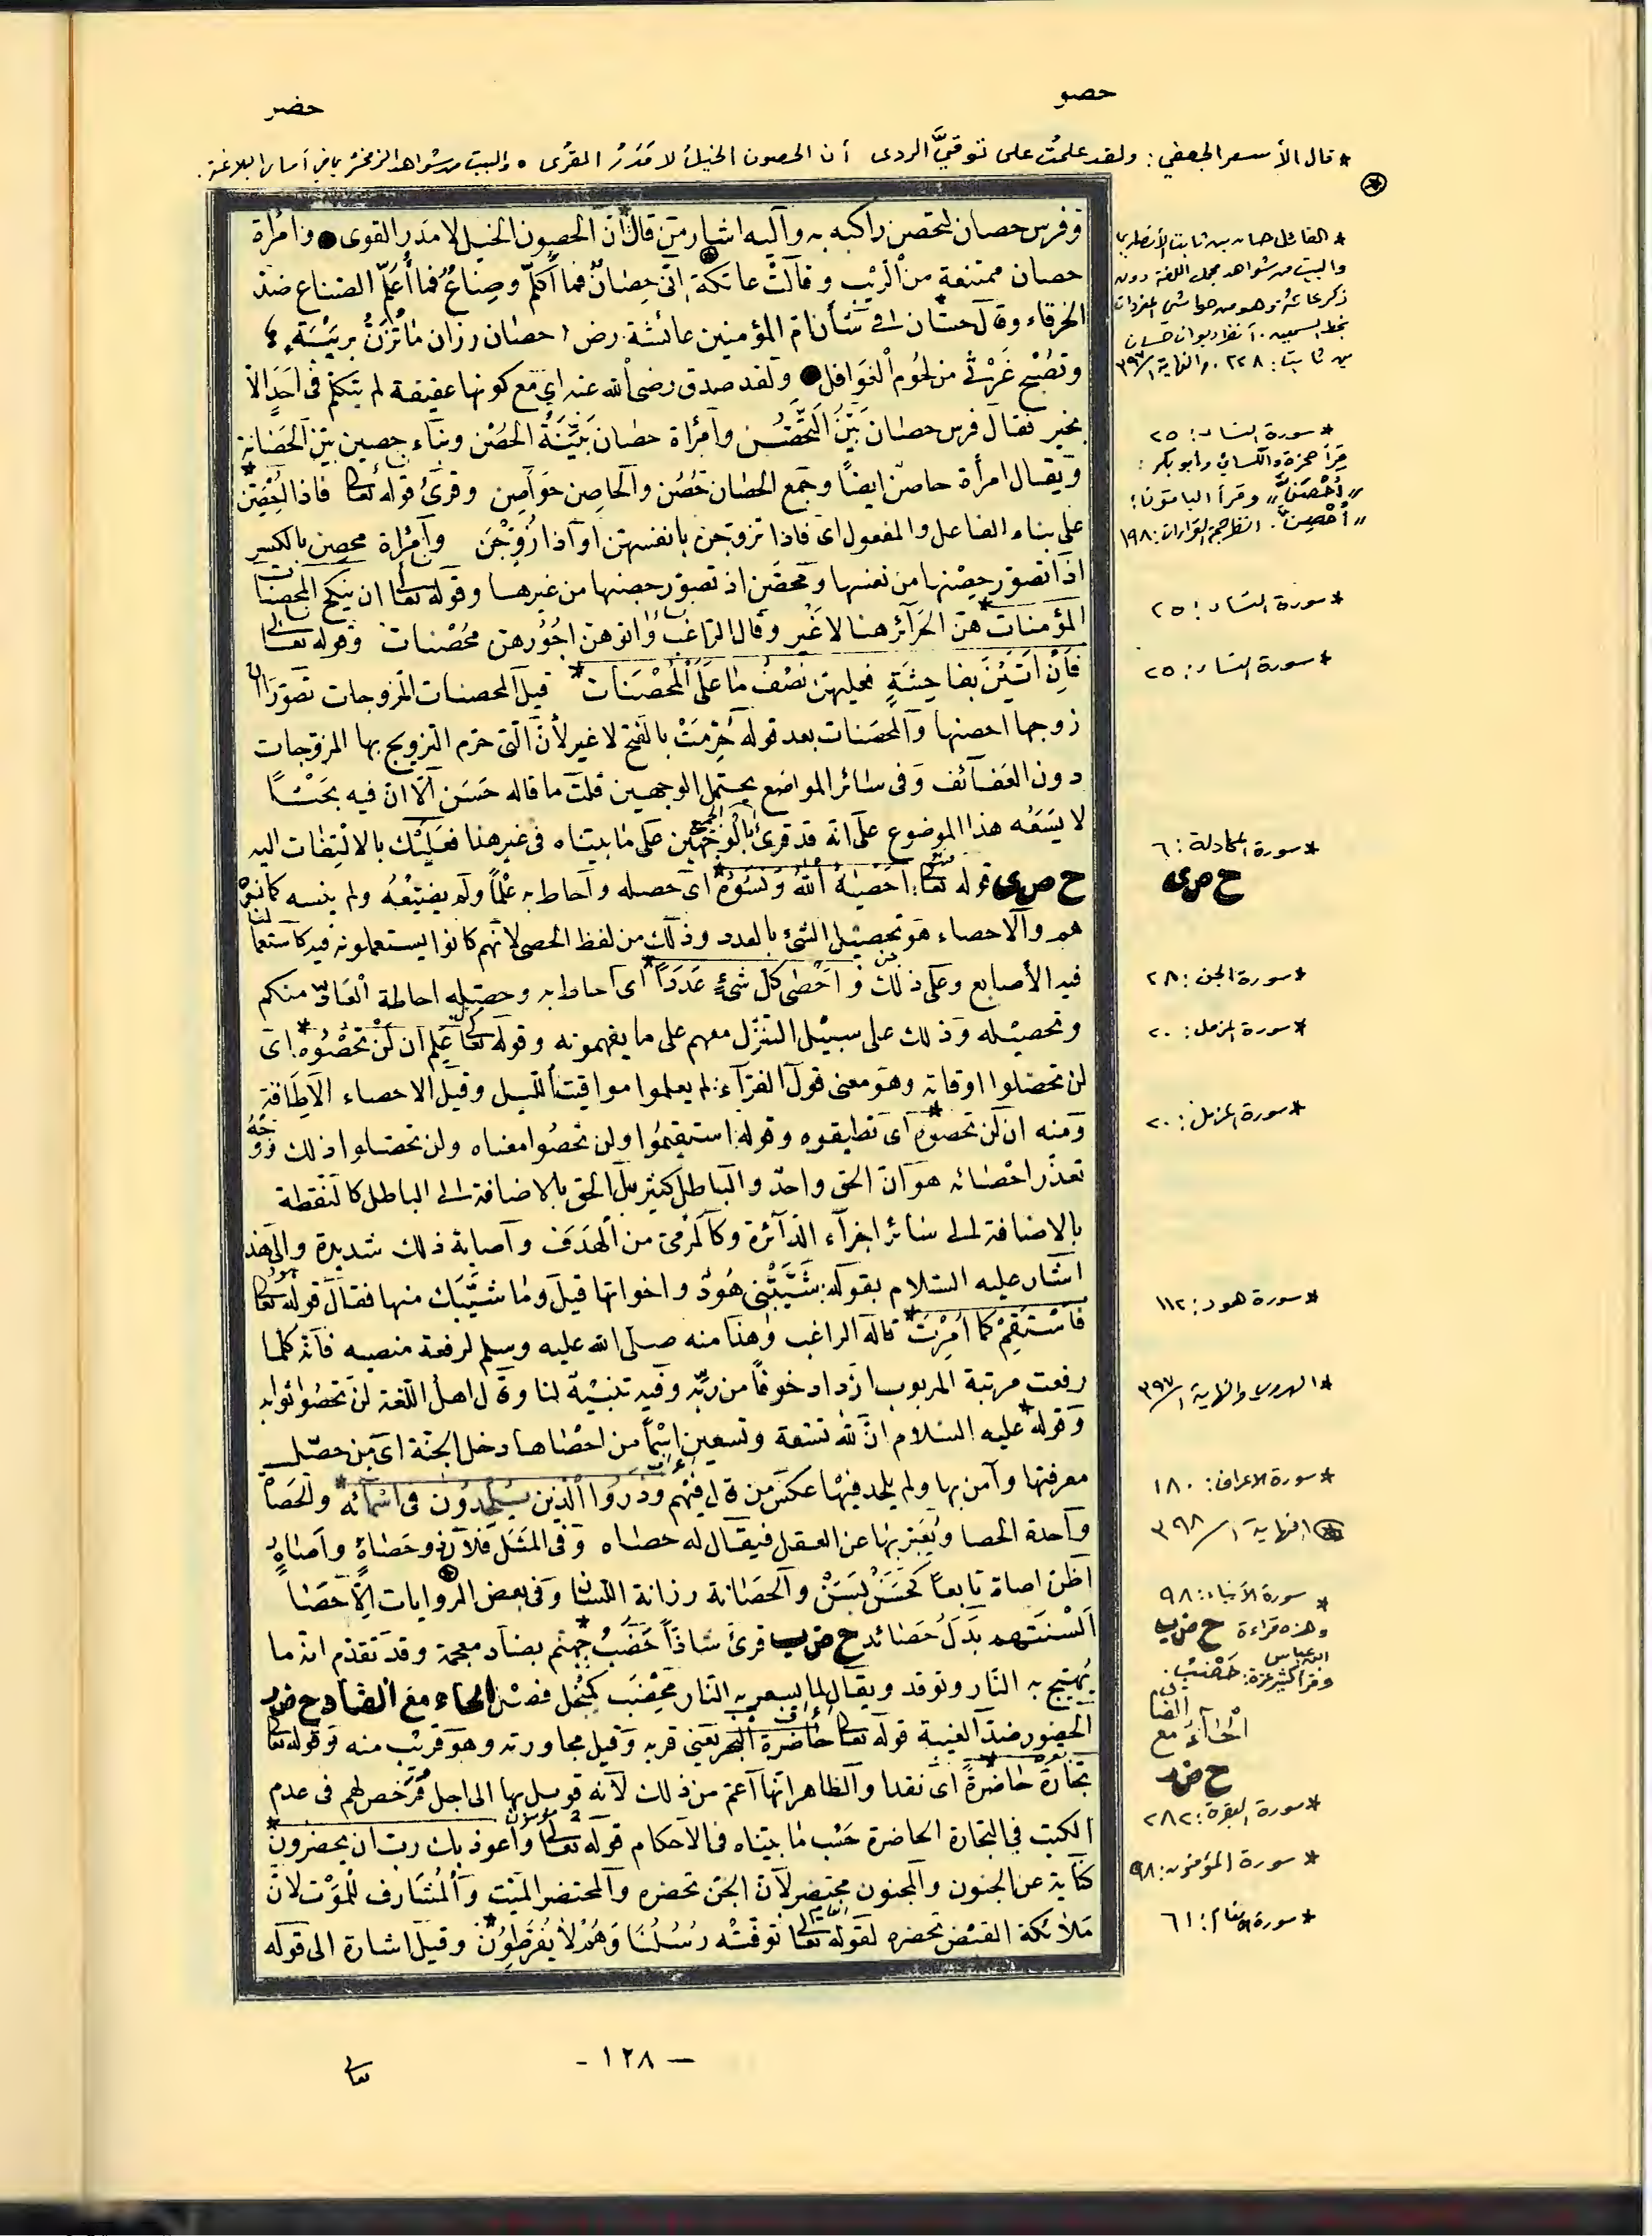 حصو
حضر
* قال الأسعر الجعفي: ولقد علمت على توقيَّ الردى أن الحصون الخيل لا مَدَرُ القرى ٥ والبيت من شواهد الزمخشري في أساس البلاغة.
وفرس حصان لتحصن راكبه به وآليه اشار من قال* ان الحصون الخيل لا مدر القوى ● وامرأة
حصان ممتنعة من الريب وقالت عاتكة إني حصان فما أكلّم وصناع فما أُعلّم الصناع ضد
الخرقاء وقال حسان في شأن ام المؤمنين عائشة رض* حصان رزان ما تُزَنُّ بريبَة
وتُصْبح غَرْثى من لحُوم الْغَوافل ● ولقد صدق رضى الله عنه اى مع كونها عفيفة لم يتكلم فى احَدٍ الا
بخير تقال فرس حصان بَيِّنُ التَّحَصُّن وامْرأة حصان بَيِّنَةُ الحصْن وبناء حصين بين الحصانة
ويقال امرأة حاصن ايضًا وجمع الحصان حُصُن والحاصِن حَوَاصِن وقرئ قوله تعالى فاذا اُحْصِنَّ*
على بناء الفاعل والمفعول اى فاذا تزوجن بانفسهن او اذا زُوِّجْنَ وامْرأة محصِن بالكسر
اذا تصور حِصْنها من نفسها ومحصَن اذ تصور حصنها من غيرها وقوله تعالى ان ينكح المحصنات
المؤمنات* هنّ الحرائر هنا لا غير وقال الراغب وآتوهن اجُورهن مُحْصَنات وقوله تعالى
فَاِنْ اَتَيْنَ بفاحِشَةٍ فعليهن نصْفُ مَا عَلَى الْمُحْصَنَات* قيل المحصنات المزوجات تصوّرا ان
زوجها احصنها والمحصَنات بعد قوله حُرِّمَتْ بالفتح لا غير لأن التى حرم التزويج بها المزوّجات
دون العفائف وفى سائر المواضع يحتمل الوجهين قلت ما قاله حَسَن الا ان فيه بَحْثًا
لا يَسَعُه هذا الموضوع على انه قد قرئ بالوجهين الجميع على ما بيناه فى غير هنا فعليك بالالتفات اليه
ح ص ى قوله تعالى: اَحْصيهُ اللهُ وَنَسُوهُ* اى حصله واحاط به عِلْمًا ولم يضيّعْهُ ولم ينسه كما نسوه
هم والاحصاء هو تحصيل الشئ بالعدد وذلك من لفظ الحصى لانهم كانوا يستعملونه فيه كاستعمالنا
فيه الأصابع وعلى ذلك وَاَحْصى كلّ شئٍ عَدَدًا* اى احاط به وحصله احاطة العَادّ منكم
وتحصيله وذلك على سبيل التنزّل معهم على ما يفهمونه وقوله تعالى عَلِمَ اَن لَنْ تُحْصُوه* اى
لن تحصّلوا اوقاته وهو معنى قول الفرّاء: لم يعلموا مواقيت الليل وقيل الاحصاء الاِطاقة
ومنه ان لن تحصوه* اى تطيقوه وقوله: استقيموا ولن تحصُوا معناه ولن تحصّلوا ذلك ووجهُ
تعذر احْصائه هو ان الحق واحدٌ والباطل كثير بل الحق بالاضافة الى الباطل كالنقطة
بالاضافة الى سائر اجزاء الدائرة وكالمرمى من الهدف واصابة ذلك شديدة والى هذا
اشار عليه السلام بقوله: شَيَّبَتْنى هُودٌ واخواتها قيل وما شيَّبَك منها فقال قوله تعالى
فَاسْتَقِمْ كَمَا اُمِرْتَ* قاله الراغب وهذا منه صلى الله عليه وسلم لرفعة منصبه فانه كلما
رفعت مرتبة المربوب ازداد خوفًا من ربّه وفيه تنبيه لنا وقال اهل اللغة لن تحصُوا ثوابه
وقوله* عليه السلام انّ لله تسعة وتسعين اسْمًا من احصاها دخل الجنّة اى من حصّل
معرفتها وآمن بها ولم يلحد فيها عكس من قال فيهم وذَرُوا الّذين يُلْحِدُون فى اسْمآئه* والحَصَاة
واحدة الحصا ويُعَبّر بها عن العقل فيقال له حصاه وفى المثَل فلان ذو حَصَاةٍ واَصَاةٍ
اظن اصاة تابعاً كحَسَنْ بَسَنْ والحَصَانة رزانة اللسان وفى بعض الروايات اِلّا حَصَا
اَلْسنَتهم بَدَلُ حَصَائد ح ض ب قرئ شاذاً حَضَبُ* جهنّم بضاد معجمة وقد تقدم انه ما
يُهيّج به النار وتوقد ويقال لما يسعر به النار مِحْضَب كَمِنْجَل فصل الحاء مع الضاد ح ض ر
الحضور ضدّ الغيبة قوله تعالى حاضرة البحر تعنى قربه وقيل مجاورته وهو قريب منه وقوله تعالى
تجَارَةً حَاضرَةً* اى نقدا والظاهر انها اعم من ذلك لانه توسل بها الى اجل فَرُخّص لهم فى عدم
الكتب فى التجارة الحاضرة حَسْب ما بيّناه فى الاحكام قوله تعالى واَعوذ بك رب ان يحضرون*
كناية عن الجنون والمجنون محتضر لان الجن تحضره والمحتضر الميّت والمُشَارف للمَوْت لان
مَلائكة القبض تحضره لقوله تعالى توَفَّتْه رُسُلُنَا وَهُمْ لا يُفَرّطُونَ* وقيل اشارة الى قوله
* القائل حسان بن ثابت الأنصاري
والبيت من شواهد مجمل اللغة دون
بن ثابت: ٢٢٨. والنهاية ١/٣٩٧
* سورة النساء: ٢٥
قرأ حمزة والكسائي وأبو بكر:
«أَحْصَنَّ» وقرأ الباقون:
«أُحْصِنَّ». انظر حجة القراءات: ١٩٨
* سورة النساء: ٢٥
* سورة النساء: ٢٥
* سورة المجادلة: ٦
ح ص ى
* سورة الجن: ٢٨
* سورة المزمل: ٢٠
* سورة المزمل: ٢٠
* سورة هود: ١١٢
* الهروي والنهاية ١/٣٩٧
* سورة الاعراف: ١٨٠
* النهاية ١/٣٩٨
* سورة الأنبياء: ٩٨
وهذه قراءة ح ض ب
ابن عباس
وقرأ كثير عزة: حَضْبُ.
الضاد
الحَاءُ مع
ح ض ر
* سورة البقرة: ٢٨٢
* سورة المؤمنون: ٩٨
* سورة الأنعام: ٦١
- ١٢٨ -
تعالى